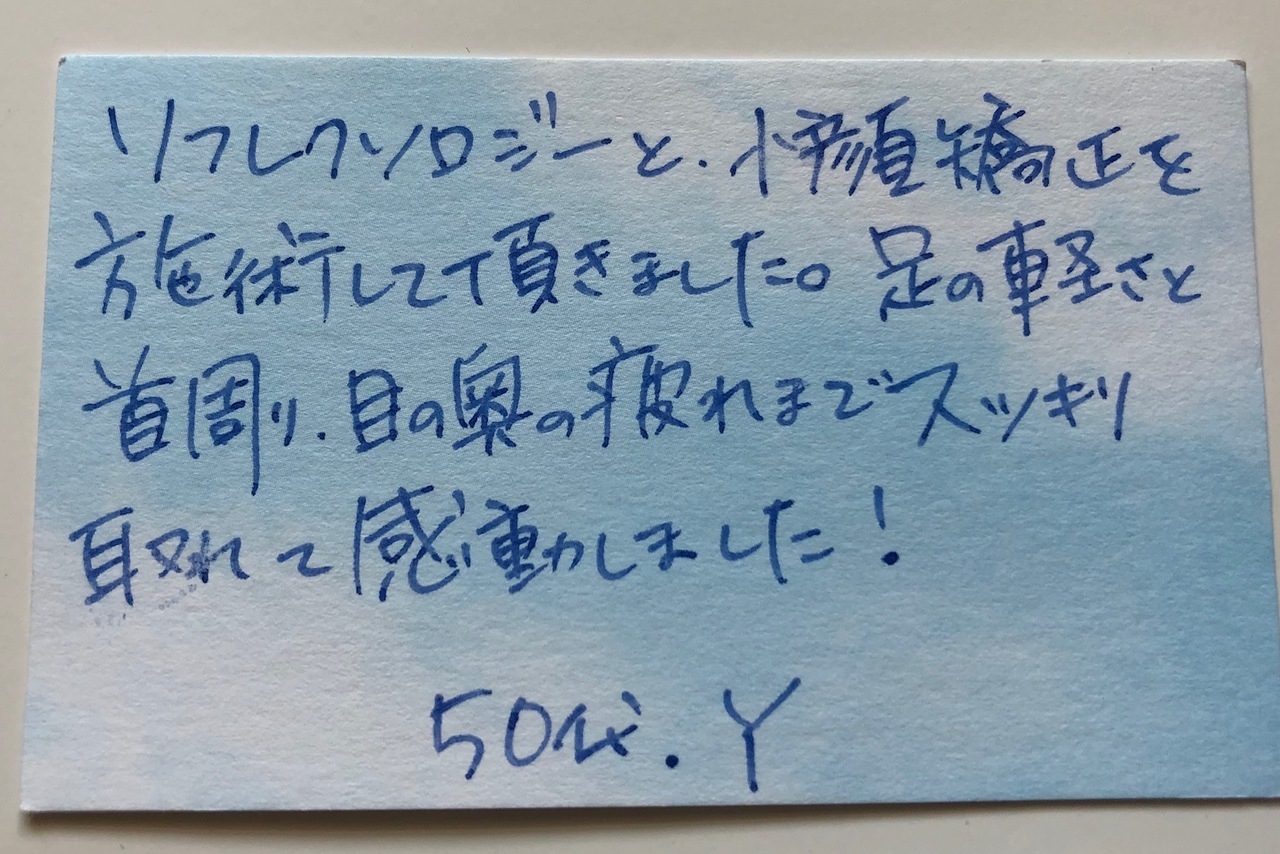 リフレクソロジーと、小顔矯正を
施術して頂きました。足の軽さと
首周り、目の奥の疲れまでスッキリ
取れて感動しました!
50代. Y